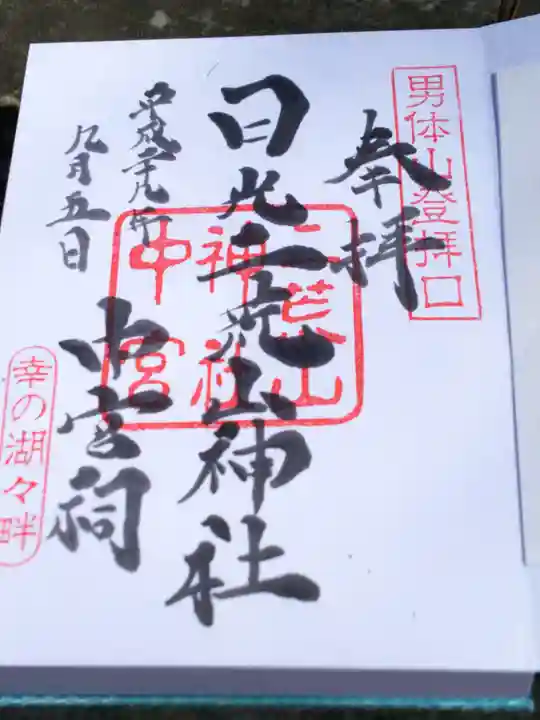 男体山登拝口
奉拝
日光二荒山神社
二荒山
神社
中宮
中宮祠
平成二十九年
九月五日
幸の湖々畔